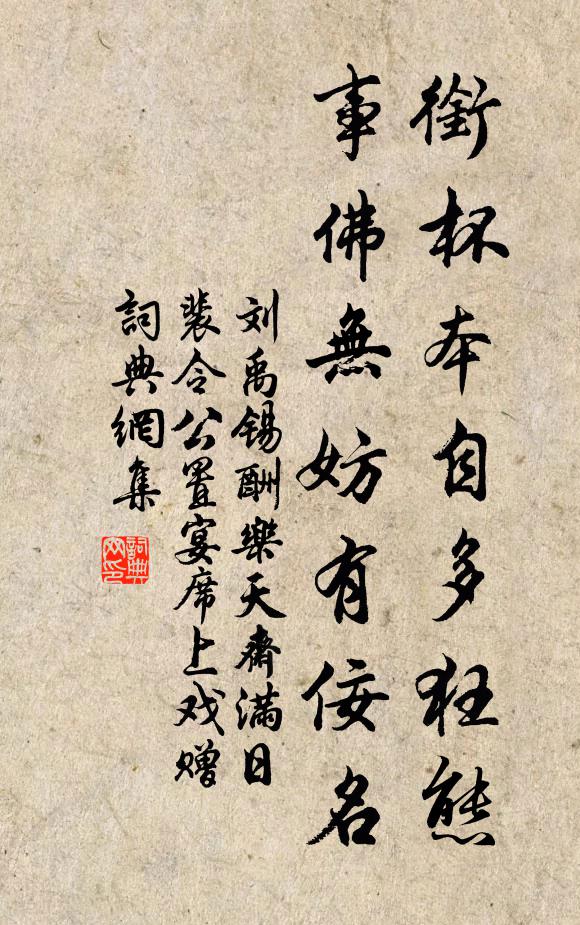 銜杯本自多狂態
事佛無妨有佞名
刘禹锡酬樂天齋滿日
裴令公置宴席上戏赠
詞典網集
詞典网印